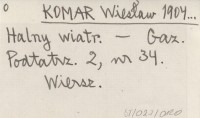 o KOMAR Wiesław 1904...
Halny wiatr. — Gaz.
Podtatrz. 2, nr 34.
Wiersz.